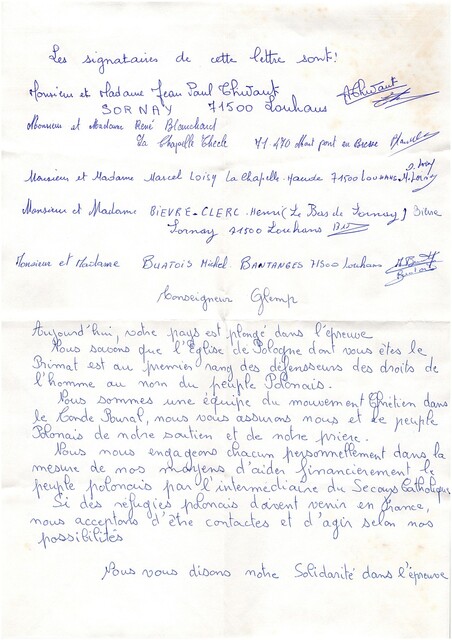 Les signataires de cette lettre sont:
Monsieur et Madame Jean Paul Thivant AThivant
SORNAY 71500 Louhans
Monsieur et Madame René Blanchard
La Chapelle Thecle 71 470 Mont pont en Bresse
Monsieur et Madame Marcel Loisy La Chapelle-Naude 71500 Louhans
Monsieur et Madame BIEVRE-CLERC Henri (Le Bas de Sornay)
Sornay 71500 Louhans
Monsieur et Madame BUATOIS Michel. BANTANGES 71500 Louhans
Buatois
Monseigneur Glemp
Aujourd'hui, votre pays est plongé dans l'épreuve
Nous savons que l'Eglise de Pologne dont vous êtes le
Primat est au premier rang des défensseurs des droits de
l'homme au nom du peuple Polonais.
Nous sommes une équipe du mouvement Chrétien dans
le Monde Rural, nous vous assurons nous et le peuple
Polonais de notre soutien et de notre prière.
Nous nous engageons chacun personnellement dans la
mesure de nos moyens d'aider financièrement le
peuple polonais par l'intermédiaire du Secours Catholique
Si des réfugies polonais doivent venir en France,
nous acceptons d'être contactes et d'agir selon nos
possibilités
Nous vous disons notre Solidarité dans l'épreuve